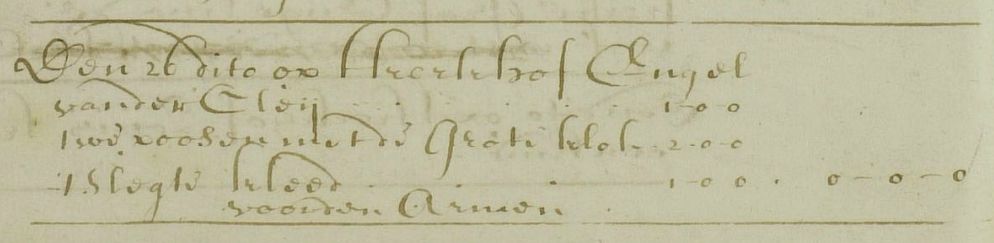 Den 26 dito op t kerkhof Engel
vander Cleij . . . . . . . 1-0-0
twe poosen met de Grote klok . 2-0-0
t Slegte kleed . . . . . . 1-0-0 . 0-0-0
voor den Armen